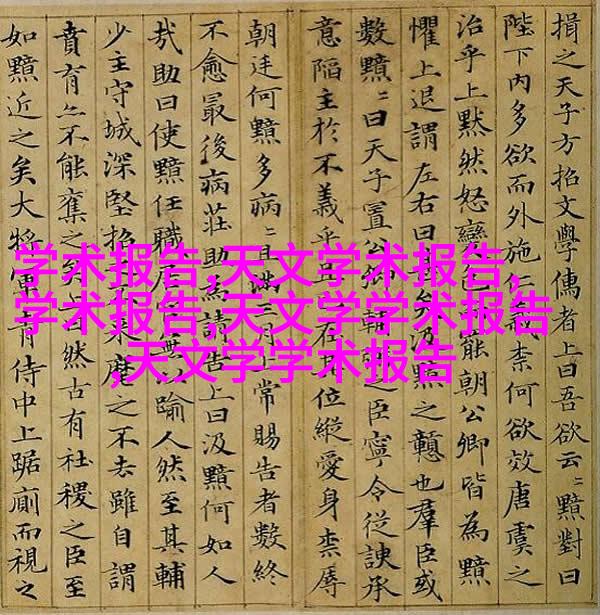 揖之天子方招文學儒者上曰吾欲云〻黯對曰
陛下內多欲而外施仁義柰何欲效唐虞之
治乎上黙然怒變色罷朝公卿皆為黯
懼上退謂左右曰甚矣汲黯之戇也羣臣或
數黯〻曰天子置公卿輔之臣寧令從諛承
意陷主於不義乎且在其位縱愛身柰辱
朝廷何黯多病〻且滿三月上常賜告者數終
不愈最後病莊助為請告上曰汲黯何如人
哉助曰使黯任職居官無以踰人然至其輔
少主守城深堅招之不來麾之不去雖自謂
賁育亦不能奪之矣上曰然古有社稷之臣至
如黯近之矣大將軍青侍中上踞廁而視之
学术报告,天文学术报告,
学术报告,天文学学术报告
,天文学学术报告